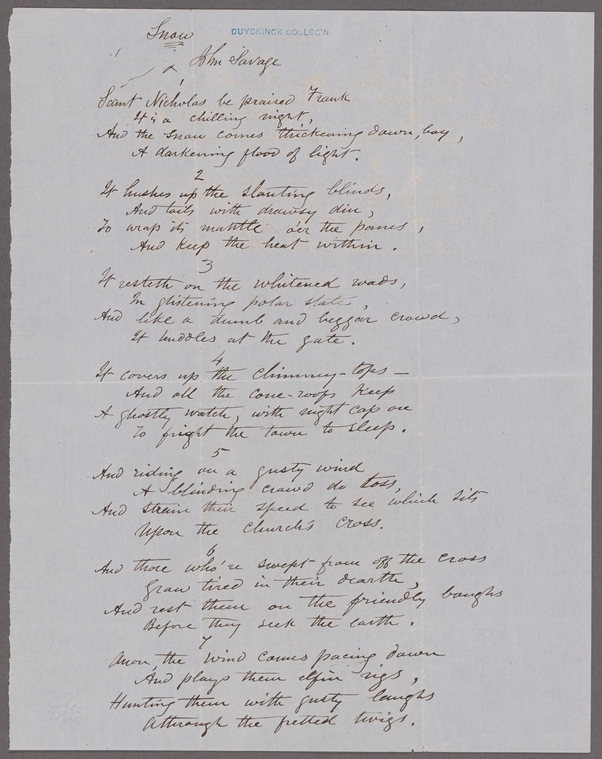 Snow
DUYCKINCK COLLEC'N.
John Savage
1
Saint Nicholas be praised Frank
It is a chilling night,
And the snow comes thickening down, boy,
A darkening flood of light.
2
It hushes up the slanting blinds,
And toils with drowsy din,
To wrap its mantle o'er the panes,
And keep the heat within.
3
It resteth on the whitened roads,
In glistening polar state,
And like a dumb and beggar crowd,
It huddles at the gate.
4
It covers up the chimney-tops—
And all the cone-roofs keep
A ghostly watch, with night cap on
To fright the town to sleep.
5
And riding on a gusty wind
A blinding crowd do toss,
And strain their speed to see which sits
Upon the church's cross.
6
And those who're swept from off the cross
Grow tired in their dearth,
And rest them on the friendly boughs
Before they seek the earth.
7
Anon, the wind comes pacing down
And plays them elfin rigs,
Hunting them with gusty laughs
Athrough the fretted twigs.